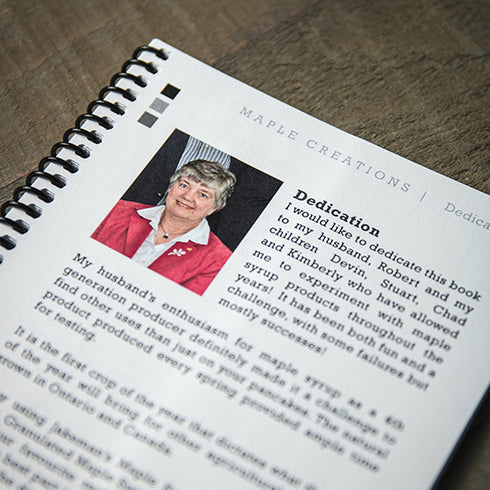 MAPLE CREATIONS | Dedica
Dedication
I would like to dedicate this book
to my husband, Robert and my
children Devin, Stuart, Chad
and Kimberly, who have allowed
me to experiment with maple
syrup products throughout the
years! It has been both fun and a
challenge, with some failures but
mostly successes!
My husband's enthusiasm for maple syrup as a 4th
generation producer definitely made it a challenge to
find other uses than just on your pancakes. The natural
product produced every spring provided ample time
for testing.
It is the first crop of the year that dictates what
of the year will bring for other agricultural
rown in Ontario and Canada.
using Jakeman's Maple
Granulated Maple
r favourite